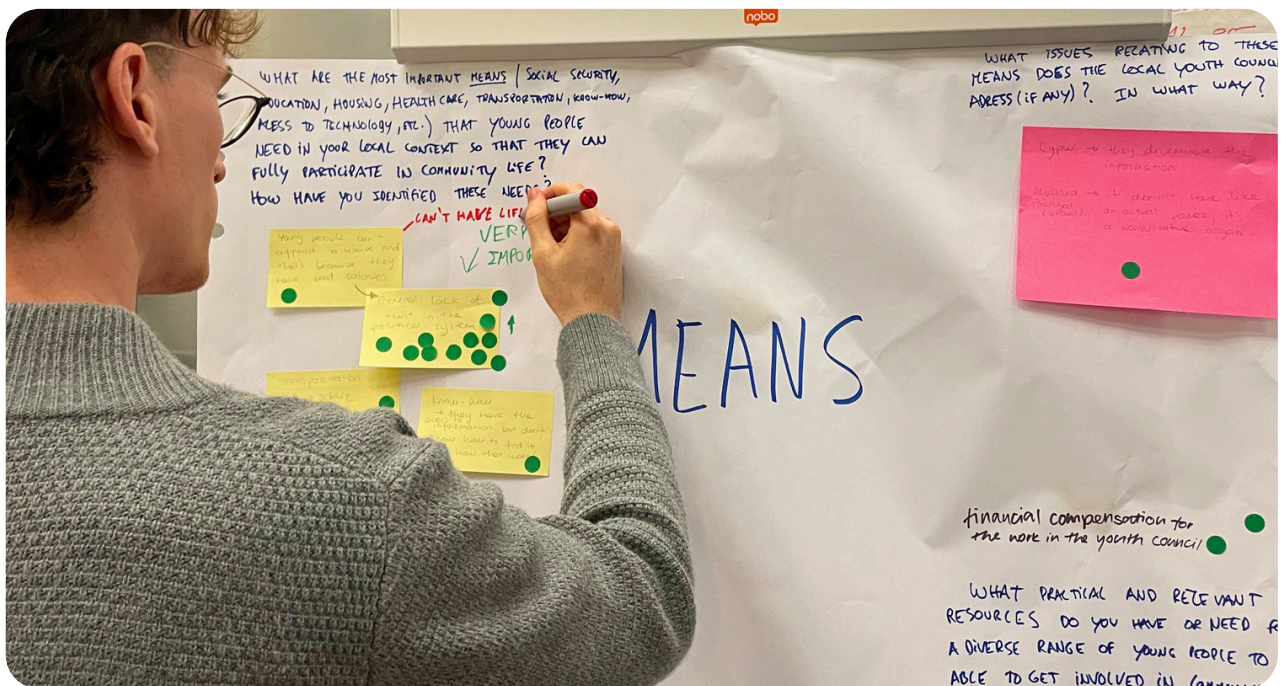 nobo
WHAT ARE THE MOST IMPORTANT MEANS (SOCIAL SECURITY,
EDUCATION, HOUSING, HEALTH CARE, TRANSPORTATION, KNOW-HOW,
ACESS TO TECHNOLOGY, ETC.) THAT YOUNG PEOPLE
NEED IN YOUR LOCAL CONTEXT SO THAT THEY CAN
FULLY PARTICIPATE IN COMMUNITY LIFE?
HOW HAVE YOU IDENTIFIED THESE NEEDS?
CAN'T HAVE LIF
VERY
IMPO
Yang people can't
afford a house and
that's because they
have bad salaries
General lack of
trust in the
political system
transportation
Know-how
→ they have the
access to
information but don't
know how to find it
how that works
MEANS
WHAT ISSUES RELATING TO THESE
MEANS DOES THE LOCAL YOUTH COUNC
ADRESS (IF ANY)? IN WHAT WAY?
Cyprus → they disseminate the
information
→ it doesn't have like
an actual power, it's
a consultative organ
financial compensation for
the work in the youth council
WHAT PRACTICAL AND RELEVANT
RESOURCES DO YOU HAVE OR NEED F
A DIVERSE RANGE OF YOUNG PEOPLE TO
ABLE TO GET INVOLVED IN